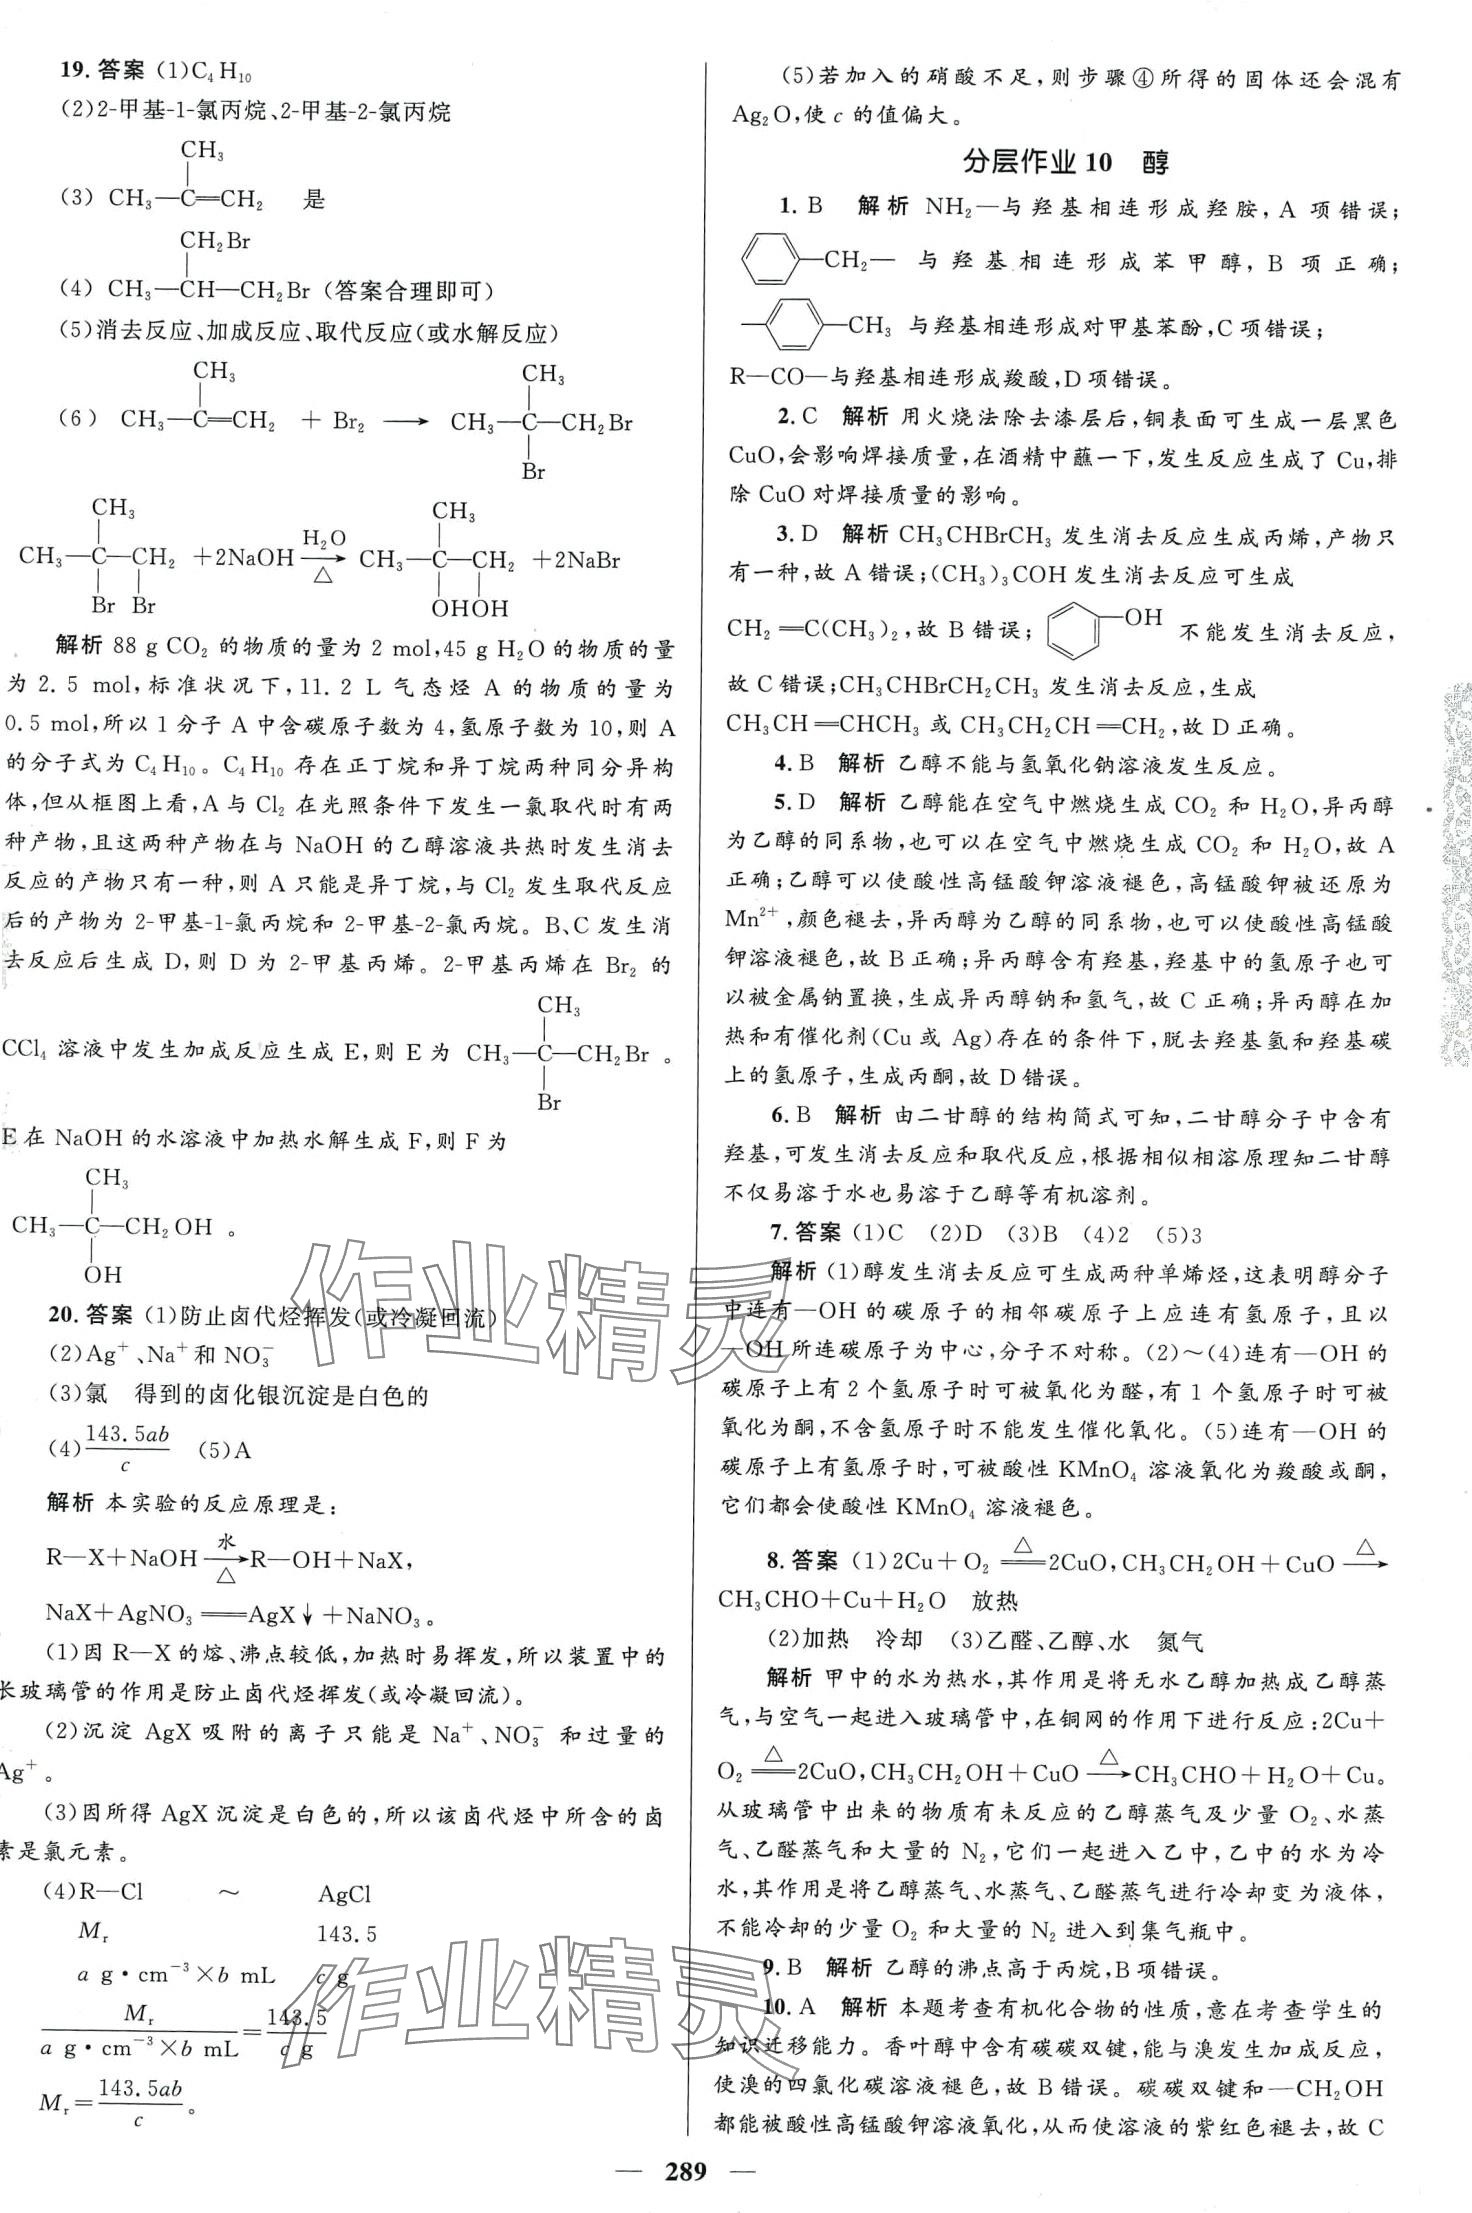 19. 答案 (1)C₄H₁₀
(2)2-甲基-1-氯丙烷、2-甲基-2-氯丙烷
CH₃
(3) CH₃—C═CH₂ 是
CH₂Br
(4) CH₃—CH—CH₂Br(答案合理即可)
(5)消去反应、加成反应、取代反应(或水解反应)
CH₃ CH₃
(6) CH₃—C═CH₂ + Br₂ ⟶ CH₃—C—CH₂Br
Br
CH₃ CH₃
CH₃—C—CH₂ +2NaOH H₂O △ → CH₃—C—CH₂ +2NaBr
Br Br OHOH
解析 88 g CO₂ 的物质的量为 2 mol,45 g H₂O 的物质的量
为 2.5 mol,标准状况下,11.2 L 气态烃 A 的物质的量为
0.5 mol,所以 1 分子 A 中含碳原子数为 4,氢原子数为 10,则 A
的分子式为 C₄H₁₀。C₄H₁₀ 存在正丁烷和异丁烷两种同分异构
体,但从框图上看,A 与 Cl₂ 在光照条件下发生一氯取代时有两
种产物,且这两种产物在与 NaOH 的乙醇溶液共热时发生消去
反应的产物只有一种,则 A 只能是异丁烷,与 Cl₂ 发生取代反应
后的产物为 2-甲基-1-氯丙烷和 2-甲基-2-氯丙烷。B、C 发生消
去反应后生成 D,则 D 为 2-甲基丙烯。2-甲基丙烯在 Br₂ 的
CH₃
CCl₄ 溶液中发生加成反应生成 E,则 E 为 CH₃—C—CH₂Br 。
Br
E 在 NaOH 的水溶液中加热水解生成 F,则 F 为
CH₃
CH₃—C—CH₂OH 。
OH
20. 答案 (1)防止卤代烃挥发(或冷凝回流)
(2)Ag⁺、Na⁺和 NO₃⁻
(3)氯 得到的卤化银沉淀是白色的
(4)143.5ab/c (5)A
解析 本实验的反应原理是:
R—X+NaOH 水 △ → R—OH+NaX,
NaX+AgNO₃══AgX↓+NaNO₃。
(1)因 R—X 的熔、沸点较低,加热时易挥发,所以装置中的
长玻璃管的作用是防止卤代烃挥发(或冷凝回流)。
(2)沉淀 AgX 吸附的离子只能是 Na⁺、NO₃⁻ 和过量的
Ag⁺。
(3)因所得 AgX 沉淀是白色的,所以该卤代烃中所含的卤
素是氯元素。
(4)R—Cl ～ AgCl
Mᵣ 143.5
a g·cm⁻³×b mL c g
Mᵣ/(a g·cm⁻³×b mL)=143.5/(c g)
Mᵣ=143.5ab/c。
(5)若加入的硝酸不足,则步骤④所得的固体还会混有
Ag₂O,使 c 的值偏大。
分层作业 10 醇
1. B 解析 NH₂—与羟基相连形成羟胺,A 项错误;
—CH₂— 与羟基相连形成苯甲醇,B 项正确;
—CH₃ 与羟基相连形成对甲基苯酚,C项错误;
R—CO—与羟基相连形成羧酸,D项错误。
2. C 解析 用火烧法除去漆层后,铜表面可生成一层黑色
CuO,会影响焊接质量,在酒精中蘸一下,发生反应生成了 Cu,排
除 CuO 对焊接质量的影响。
3. D 解析 CH₃CHBrCH₃ 发生消去反应生成丙烯,产物只
有一种,故 A 错误;(CH₃)₃COH 发生消去反应可生成
CH₂═C(CH₃)₂,故 B 错误; —OH 不能发生消去反应,
故 C 错误;CH₃CHBrCH₂CH₃ 发生消去反应,生成
CH₃CH═CHCH₃ 或 CH₃CH₂CH═CH₂,故 D 正确。
4. B 解析 乙醇不能与氢氧化钠溶液发生反应。
5. D 解析 乙醇能在空气中燃烧生成 CO₂ 和 H₂O,异丙醇
为乙醇的同系物,也可以在空气中燃烧生成 CO₂ 和 H₂O,故 A
正确;乙醇可以使酸性高锰酸钾溶液褪色,高锰酸钾被还原为
Mn²⁺,颜色褪去,异丙醇为乙醇的同系物,也可以使酸性高锰酸
钾溶液褪色,故 B 正确;异丙醇含有羟基,羟基中的氢原子也可
以被金属钠置换,生成异丙醇钠和氢气,故 C 正确;异丙醇在加
热和有催化剂(Cu 或 Ag)存在的条件下,脱去羟基氢和羟基碳
上的氢原子,生成丙酮,故 D 错误。
6. B 解析 由二甘醇的结构简式可知,二甘醇分子中含有
羟基,可发生消去反应和取代反应,根据相似相溶原理知二甘醇
不仅易溶于水也易溶于乙醇等有机溶剂。
7. 答案 (1)C (2)D (3)B (4)2 (5)3
解析 (1)醇发生消去反应可生成两种单烯烃,这表明醇分子
中连有—OH 的碳原子的相邻碳原子上应连有氢原子,且以
—OH 所连碳原子为中心,分子不对称。(2)～(4)连有—OH 的
碳原子上有 2 个氢原子时可被氧化为醛,有 1 个氢原子时可被
氧化为酮,不含氢原子时不能发生催化氧化。(5)连有—OH 的
碳原子上有氢原子时,可被酸性 KMnO₄ 溶液氧化为羧酸或酮,
它们都会使酸性 KMnO₄ 溶液褪色。
8. 答案 (1)2Cu+O₂ △══2CuO,CH₃CH₂OH+CuO △→
CH₃CHO+Cu+H₂O 放热
(2)加热 冷却 (3)乙醛、乙醇、水 氮气
解析 甲中的水为热水,其作用是将无水乙醇加热成乙醇蒸
气,与空气一起进入玻璃管中,在铜网的作用下进行反应:2Cu+
O₂ △══2CuO,CH₃CH₂OH+CuO △→CH₃CHO+H₂O+Cu。
从玻璃管中出来的物质有未反应的乙醇蒸气及少量 O₂、水蒸
气、乙醛蒸气和大量的 N₂,它们一起进入乙中,乙中的水为冷
水,其作用是将乙醇蒸气、水蒸气、乙醛蒸气进行冷却变为液体,
不能冷却的少量 O₂ 和大量的 N₂ 进入到集气瓶中。
9. B 解析 乙醇的沸点高于丙烷,B项错误。
10. A 解析 本题考查有机化合物的性质,意在考查学生的
知识迁移能力。香叶醇中含有碳碳双键,能与溴发生加成反应,
使溴的四氯化碳溶液褪色,故 B 错误。碳碳双键和—CH₂OH
都能被酸性高锰酸钾溶液氧化,从而使溶液的紫红色褪去,故 C
— 289 —
作业精灵
作业精灵